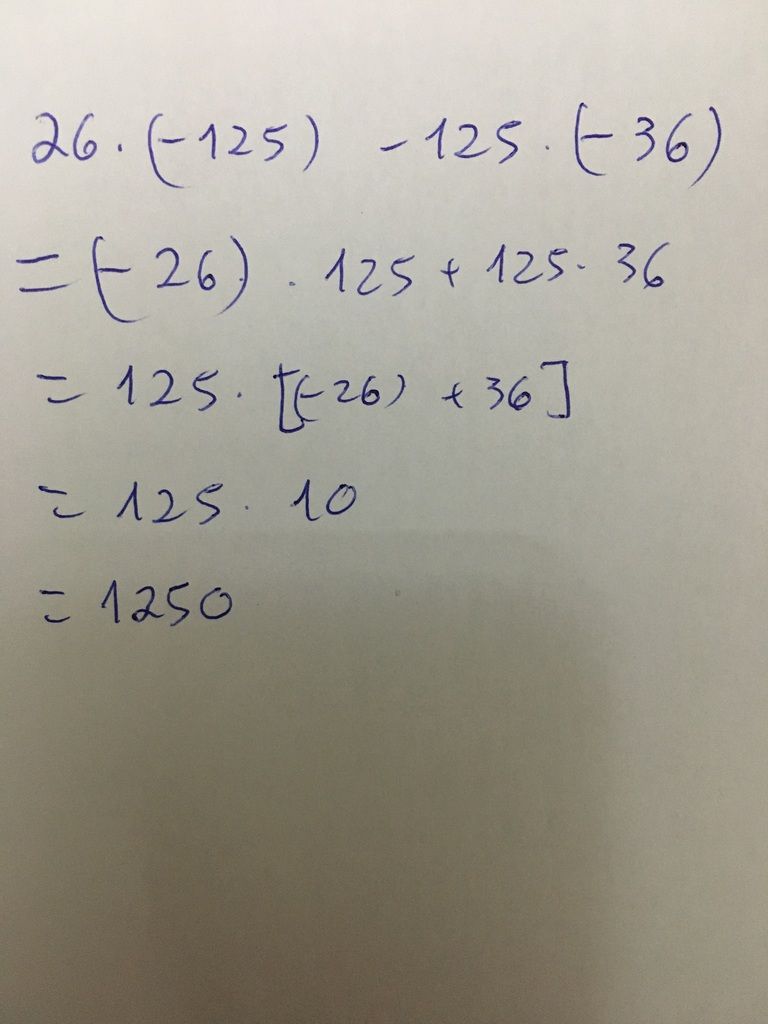 26. (-125) - 125. (-36)
= (-26) . 125 + 125. 36
= 125. [(-26) + 36]
= 125. 10
= 1250